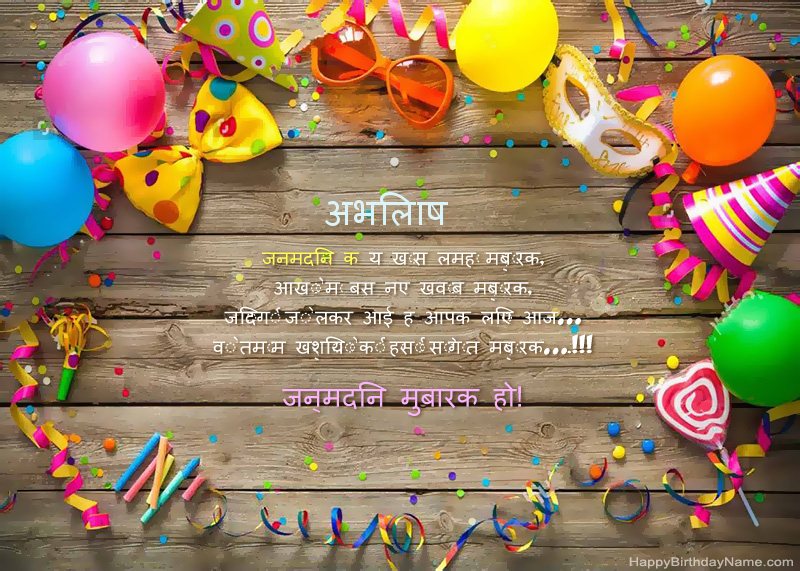 अभलिाष
जनमदनि क य खास लमह मबारक,
आखो म बस नए खवाब मबारक,
जदिगी जो लेकर आई ह आपक लएि आज...
वो तमाम खशयिो की हसी सौगात मबारक...!!!
जन्मदनि मुबारक हो!
HappyBirthdayName.com